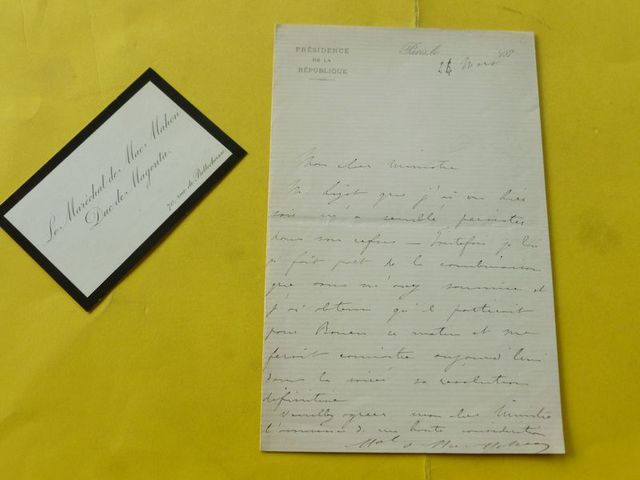 Le Maréchal de Mac Mahon
Duc de Magenta
70 rue de Bellechasse
PRÉSIDENCE
DE LA
RÉPUBLIQUE
Paris, le 188
24 Mars
Mon cher Ministre
que j'ai vu hier
soir m'a semblé persister
dans son refus – Toutefois je lui
ai fait part de la combinaison
que vous m'avez soumise et
j'ai obtenu qu'il partirait
pour Rouen ce matin et me
feroit connaitre aujourd'hui
dans la soirée sa resolution
définitive
Veuillez agréer mon cher Ministre
l'assurance de ma haute considération
Mal de Mac Mahon